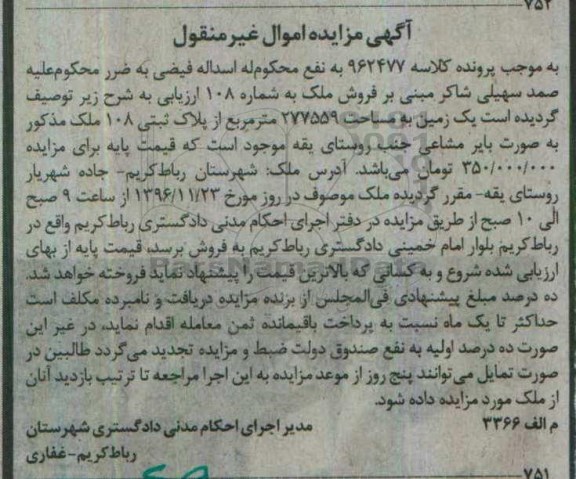 ۷۵۲
آگهی مزایده اموال غیرمنقول
به موجب پرونده کلاسه ۹۶۲۴۷۷ به نفع محکوم‌له اسداله فیضی به ضرر محکوم‌علیه
صمد سهیلی شاکر مبنی بر فروش ملک به شماره ۱۰۸ ارزیابی به شرح زیر توصیف
گردیده است یک زمین به مساحت ۲۷۷۵۵۹ مترمربع از پلاک ثبتی ۱۰۸ ملک مذکور
به صورت بایر مشاعی جنب روستای یقه موجود است که قیمت پایه برای مزایده
۳۵۰/۰۰۰/۰۰۰ تومان می‌باشد. آدرس ملک: شهرستان رباط‌کریم- جاده شهریار
روستای یقه- مقرر گردیده ملک موصوف در روز مورخ ۱۳۹۶/۱۱/۲۳ از ساعت ۹ صبح
الی ۱۰ صبح از طریق مزایده در دفتر اجرای احکام مدنی دادگستری رباط‌کریم واقع در
رباط‌کریم بلوار امام خمینی دادگستری رباط‌کریم به فروش برسد، قیمت پایه از بهای
ارزیابی شده شروع و به کسانی که بالاترین قیمت را پیشنهاد نماید فروخته خواهد شد.
ده درصد مبلغ پیشنهادی فی‌المجلس از برنده مزایده دریافت و نامبرده مکلف است
حداکثر تا یک ماه نسبت به پرداخت باقیمانده ثمن معامله اقدام نماید، در غیر این
صورت ده درصد اولیه به نفع صندوق دولت ضبط و مزایده تجدید می‌گردد طالبین در
صورت تمایل می‌توانند پنج روز از موعد مزایده به این اجرا مراجعه تا ترتیب بازدید آنان
از ملک مورد مزایده داده شود.
م الف ۳۳۶۶ مدیر اجرای احکام مدنی دادگستری شهرستان
رباط‌کریم- غفاری
۷۵۱